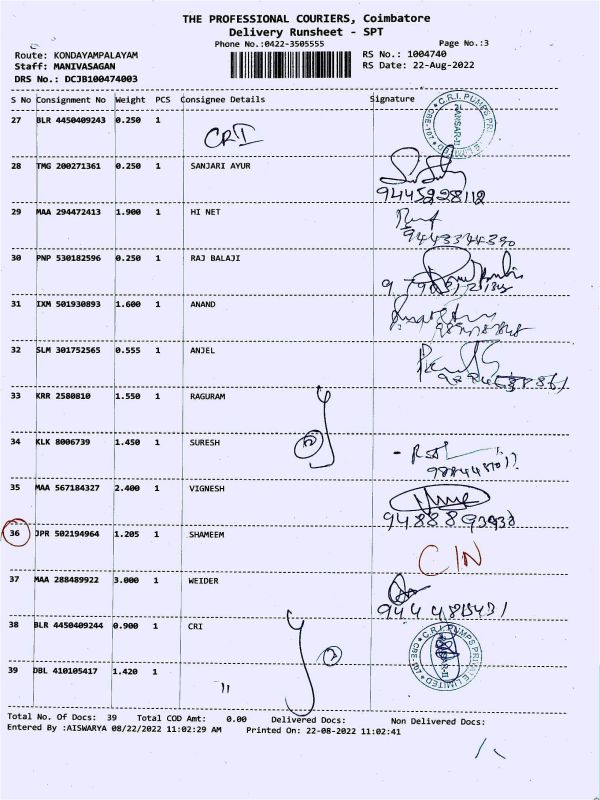 THE PROFESSIONAL COURIERS, Coimbatore
Delivery Runsheet - SPT
Phone No.:0422-3505555 Page No.:3
Route: KONDAYAMPALAYAM RS No.: 1004740
Staff: MANIVASAGAN RS Date: 22-Aug-2022
DRS No.: DCJB100474003
S No Consignment No Weight PCS Consignee Details Signature
27 BLR 4450409243 0.250 1 CRI
28 TMG 200271361 0.250 1 SANJARI AYUR
9445228112
29 MAA 294472413 1.900 1 HI NET
9443344390
30 PNP 530182596 0.250 1 RAJ BALAJI
31 IXM 501930893 1.600 1 ANAND
32 SLM 301752565 0.555 1 ANJEL
33 KRR 2580810 1.550 1 RAGURAM
34 KLK 8006739 1.450 1 SURESH
35 MAA 567184327 2.400 1 VIGNESH
36 JPR 502194964 1.205 1 SHAMEEM CIN
37 MAA 288489922 3.000 1 WEIDER
38 BLR 4450409244 0.900 1 CRI
39 DBL 410105417 1.420 1 11
Total No. Of Docs: 39 Total COD Amt: 0.00 Delivered Docs: Non Delivered Docs:
Entered By :AISWARYA 08/22/2022 11:02:29 AM Printed On: 22-08-2022 11:02:41